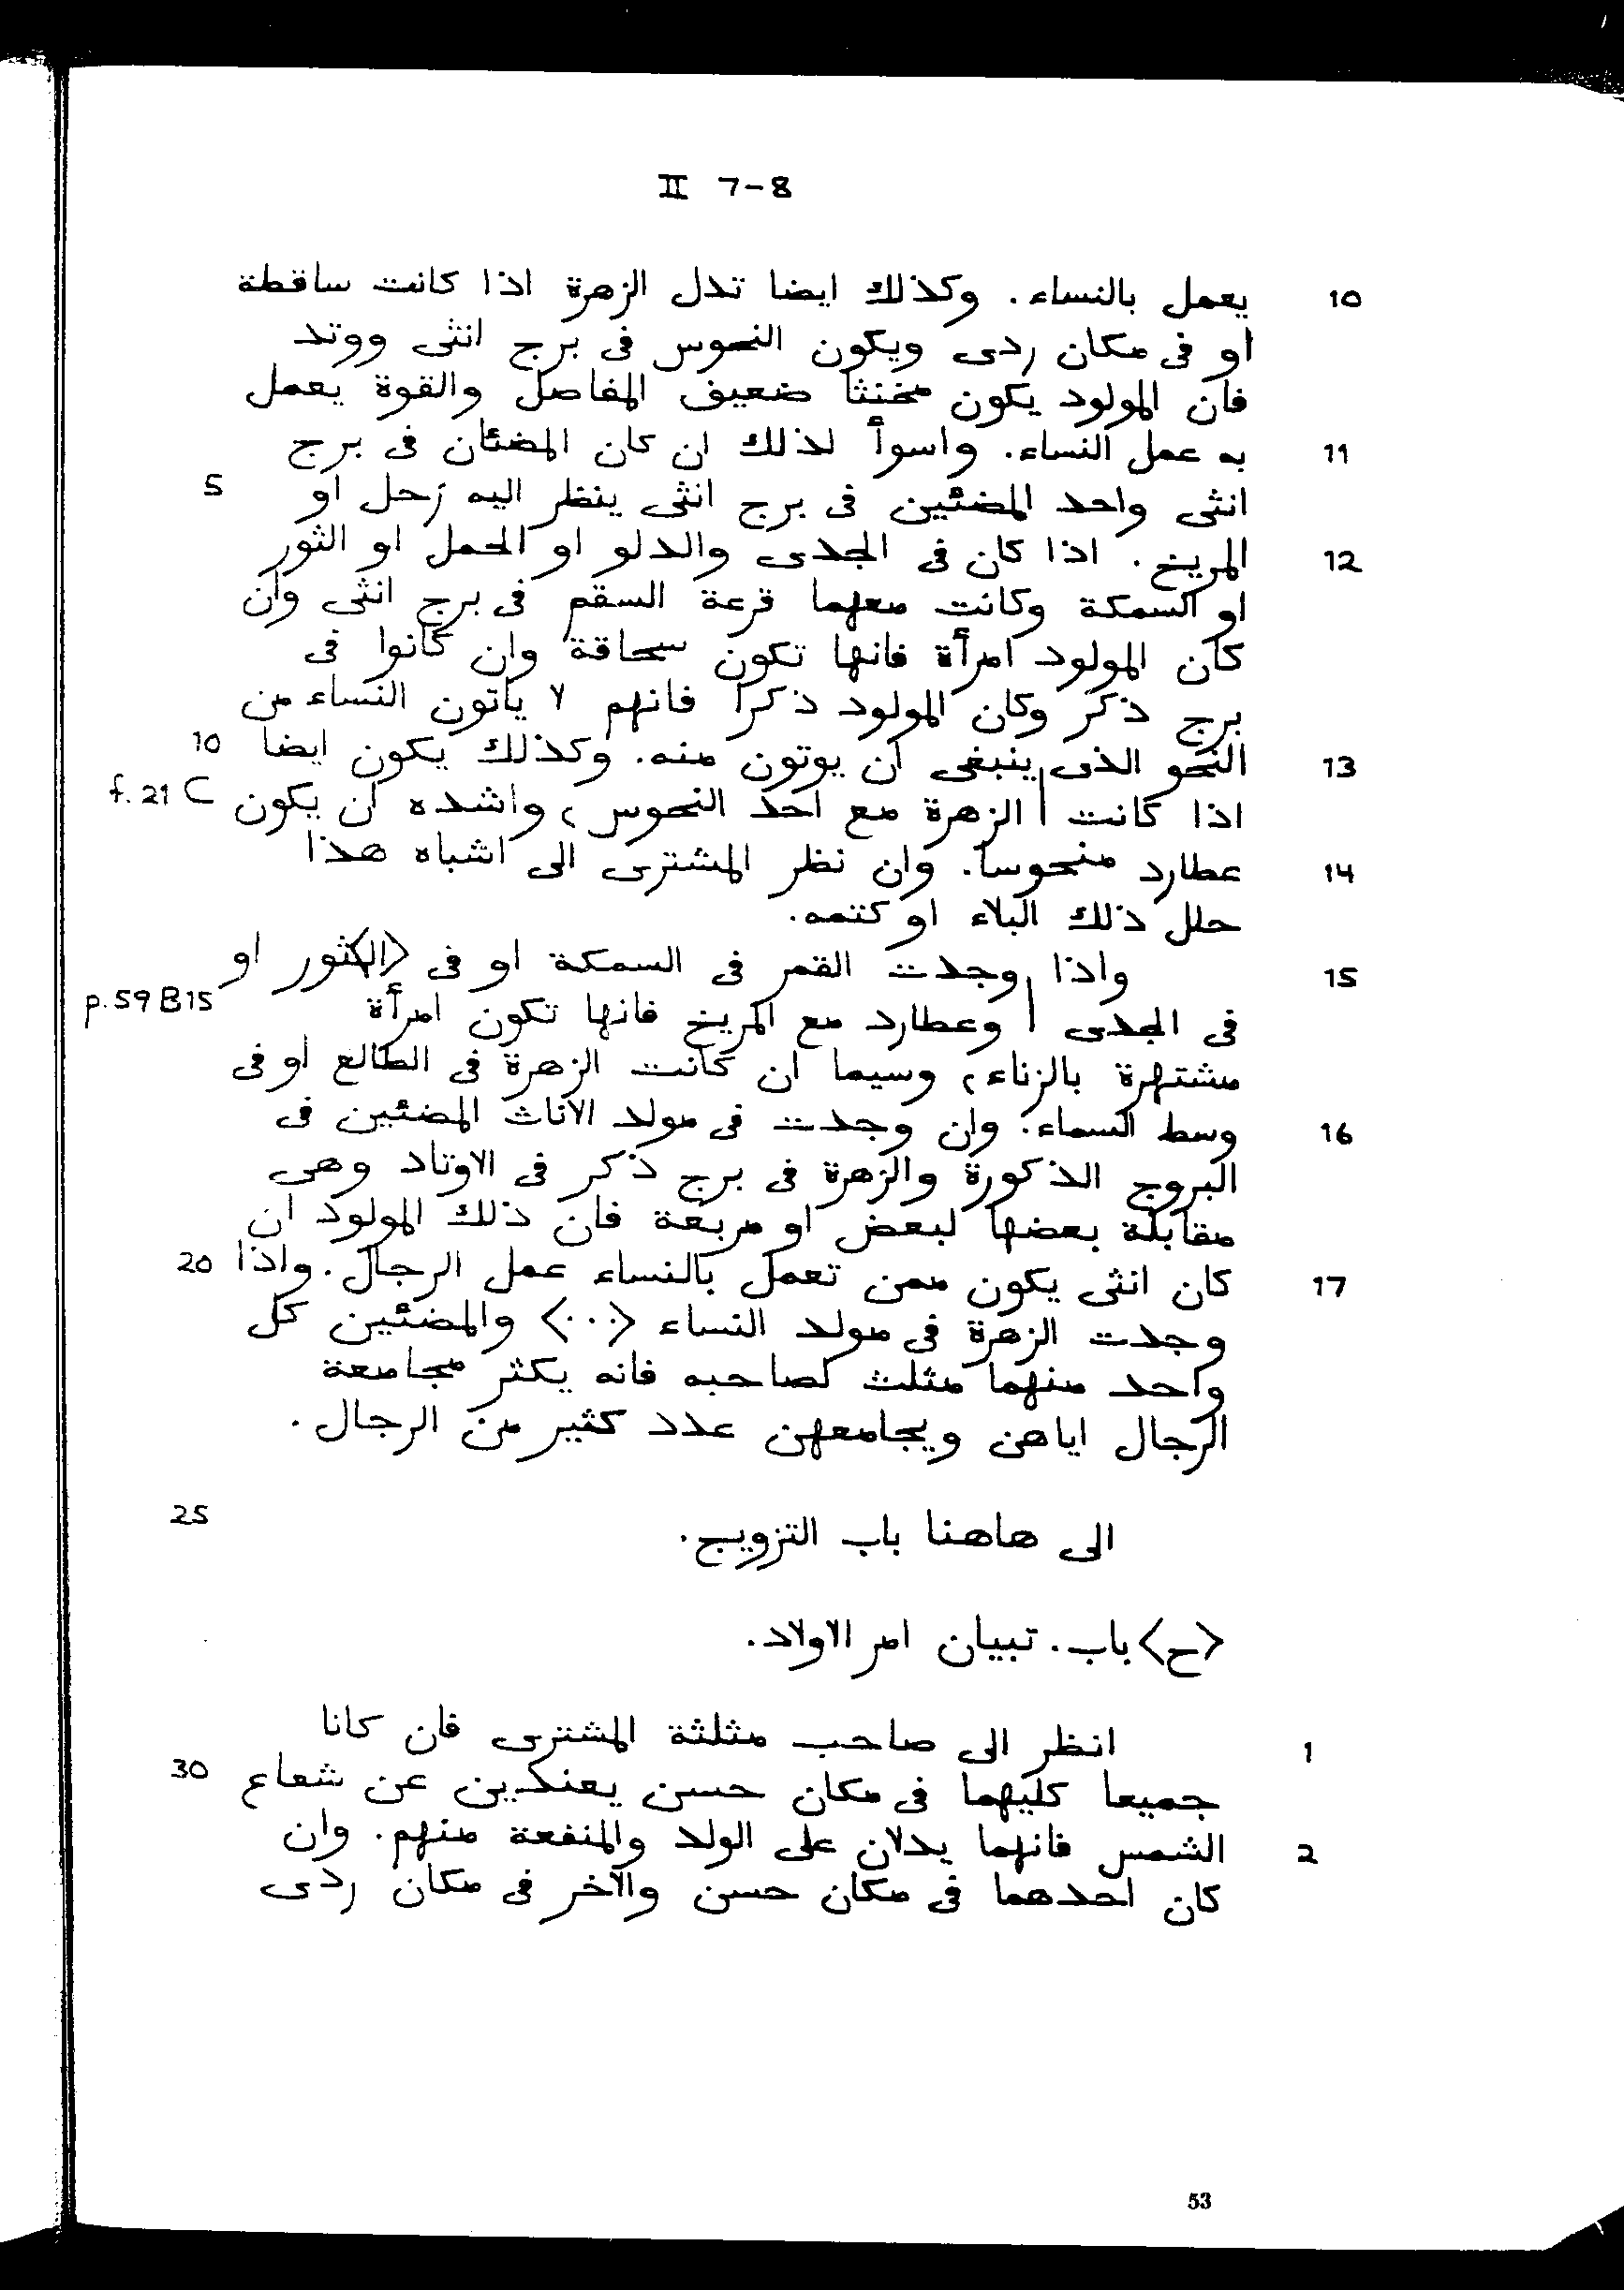 II 7-8
يعمل بالنساء. وكذلك ايضا تدل الزهرة اذا كانت ساقطة 10
او فى مكان ردى ويكون النحوس فى برج انثى ووتد
فان المولود يكون مخنثا ضعيف المفاصل والقوة يعمل
به عمل النساء. واسوأ لذلك ان كان المضئان فى برج 11
انثى واحد المضئين فى برج انثى ينظر اليه زحل او 5
المريخ. اذا كان فى الجدى والدلو او الحمل او الثور 12
او السمكة وكانت معهما قرعة السقم فى برج انثى وان
كان المولود امرأة فانها تكون سحاقة وان كانوا فى
برج ذكر وكان المولود ذكرا فانهم لا ياتون النساء من
النحو الذى ينبغى ان يوتون منه. وكذلك يكون ايضا 13 10
اذا كانت | الزهرة مع احد النحوس، واشده ان يكون f. 21 C
عطارد منحوسا. وان نظر المشترى الى اشباه هذا 14
حلل ذلك البلاء او كتمه.
واذا وجدت القمر فى السمكة او فى <ال>ثور او 15
فى الجدى | وعطارد مع المريخ فانها تكون امرأة p. 59 B 15
مشتهرة بالزناء، وسيما ان كانت الزهرة فى الطالع او فى
وسط السماء. وان وجدت فى مولد الاناث المضئين فى 16
البروج الذكورة والزهرة فى برج ذكر فى الاوتاد وهى
مقابلة بعضها لبعض او مربعة فان ذلك المولود ان
كان انثى يكون ممن تعمل بالنساء عمل الرجال. واذا 17 20
وجدت الزهرة فى مولد النساء <...> والمضئين كل
واحد منهما مثلث لصاحبه فانه يكثر مجامعة
الرجال اياهن ويجامعهن عدد كثير من الرجال.
الى هاهنا باب التزويج. 25
<ح> باب. تبيان امر الاولاد.
انظر الى صاحب مثلثة المشترى فان كانا 1
جميعا كليهما فى مكان حسن يعندين عن شعاع 30
الشمس فانهما يدلان على الولد والمنفعة منهم. وان 2
كان احدهما فى مكان حسن والآخر فى مكان ردى
53